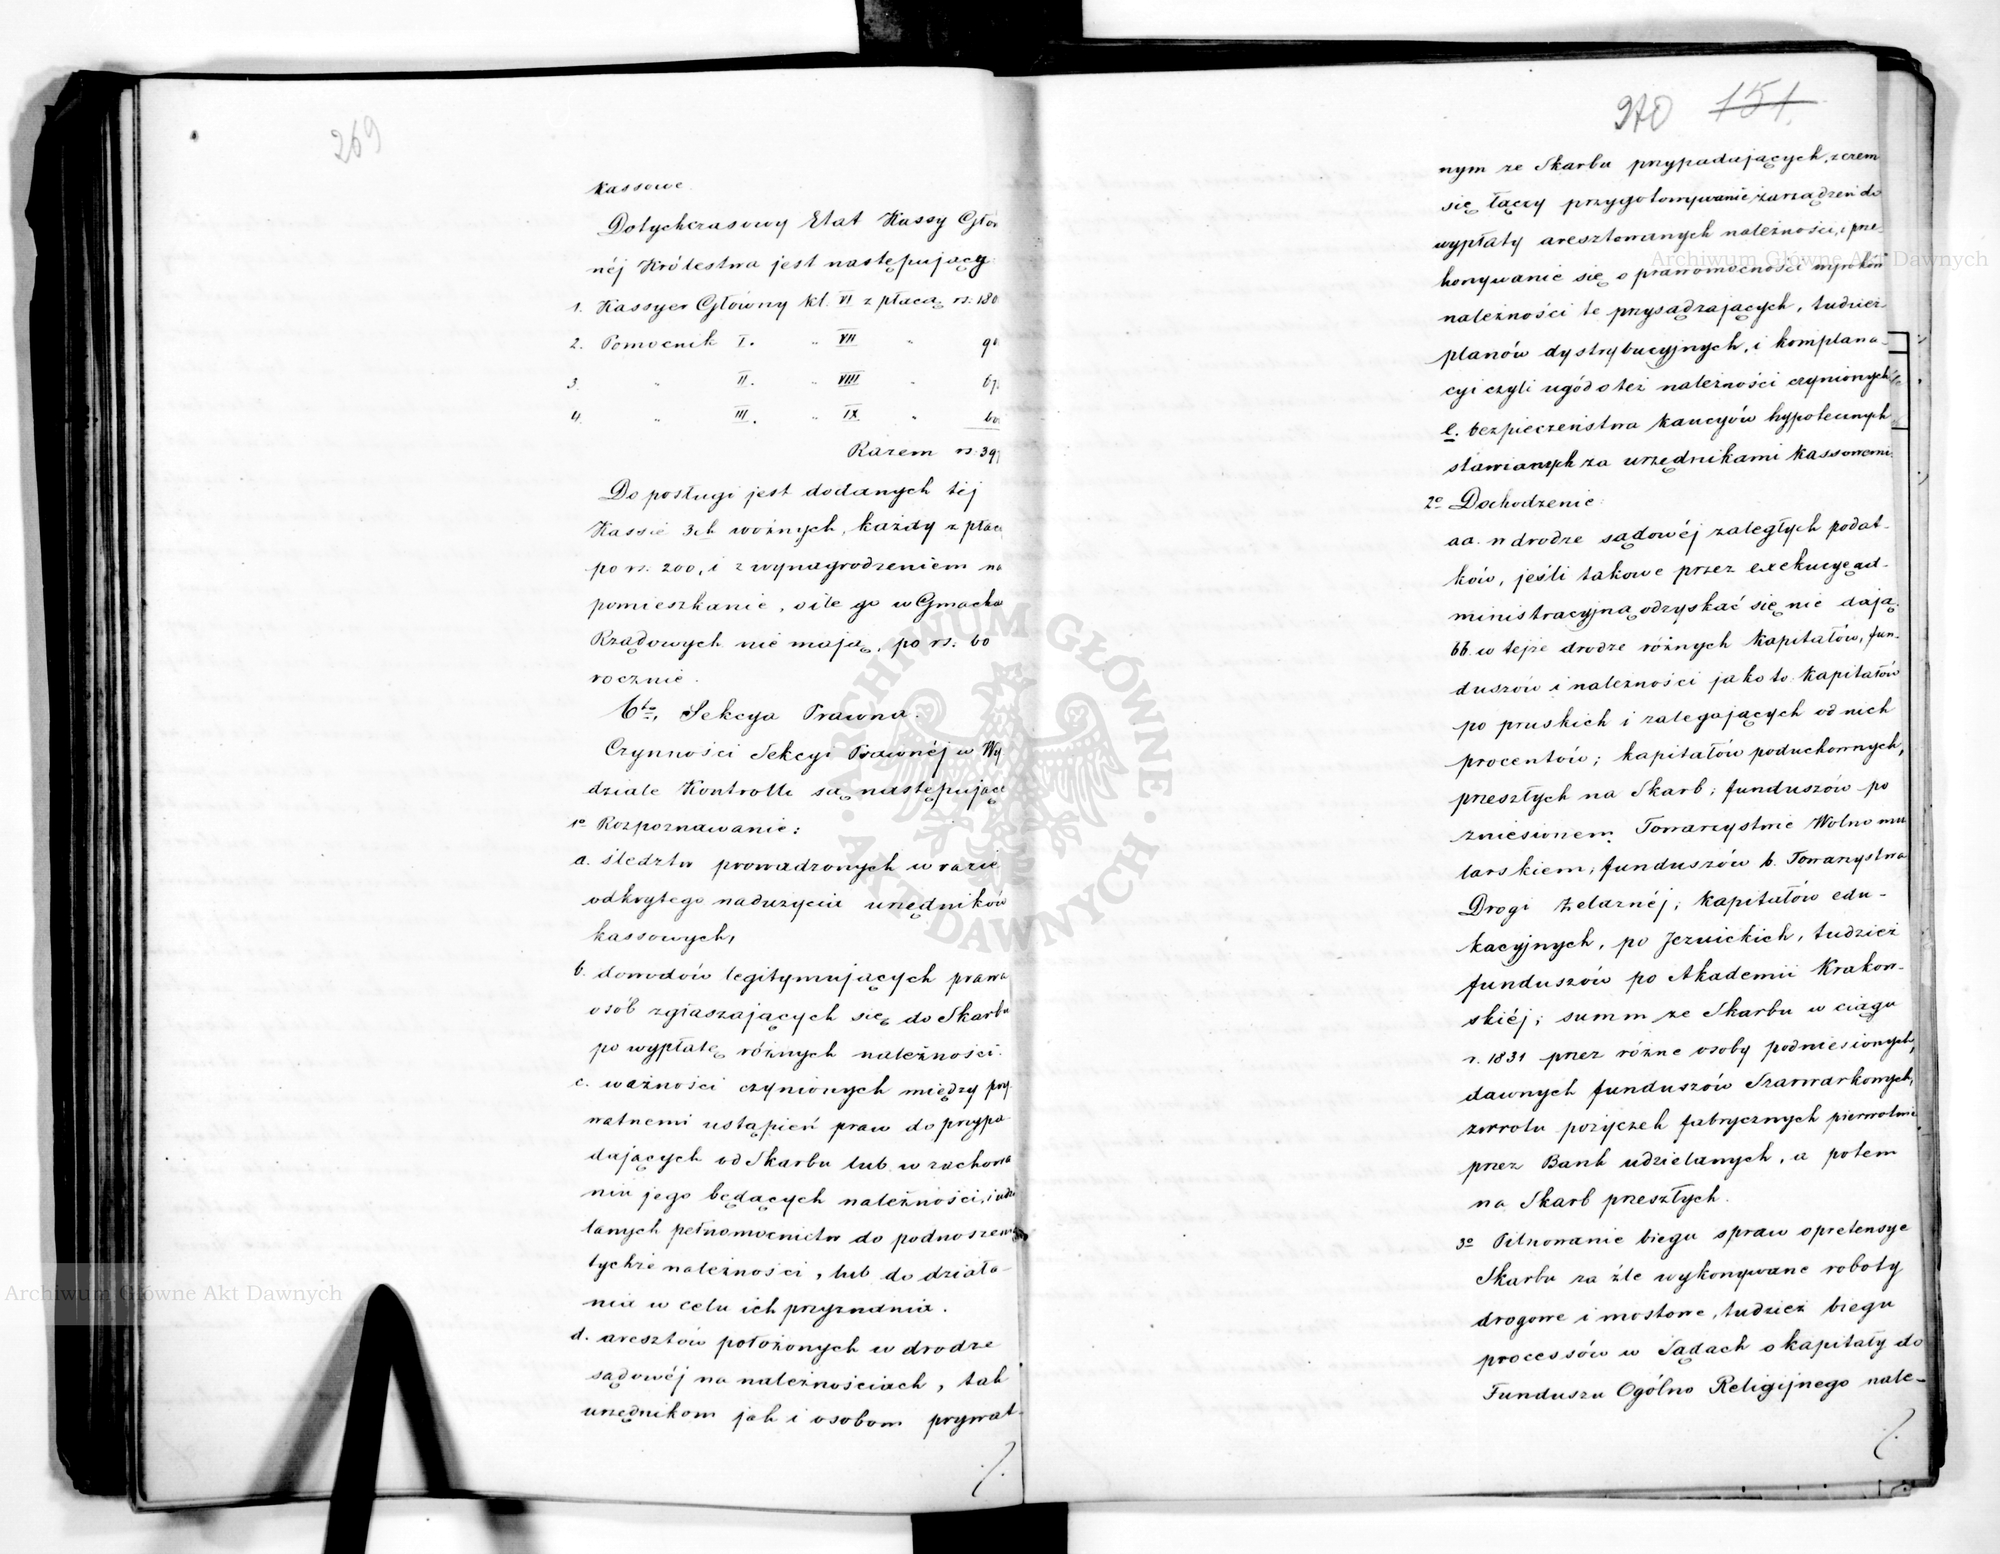 269
kassowe.
Dotychczasowy Etat Kassy Głów
néj Królestwa jest następujący
1. Kassyer Główny kl. VI z płacą rs. 180
2. Pomocnik I. " VII " 90
3. " II. " VIII " 67
4. " III. " IX " 60
Razem rs. 39
Do posługi jest dodanych téj
Kassie 3ch woźnych, każdy z płac
po rs. 200, i z wynagrodzeniem na
pomieszkanie, o ile go w Gmacha
Rządowych nie mają, po rs. 60
rocznie.
6to, Sekcya Prawna.
Czynności Sekcyi Prawnéj w Wy
dziale Kontrolli są następujące
1o Rozpoznawanie:
a. śledztw prowadzonych w razie
odkrytego nadużycia urzędników
kassowych,
b. dowodów legitymujących prawa
osób zgłaszających się do Skarbu
po wypłatę różnych należności.
c. ważności czynionych między pry
watnemi ustąpień praw do przypa
dających od Skarbu lub w zachowa
niu jego będących należności, i udzie
lanych pełnomocnictw do podnoszenia
tychże należności, lub do działa-
nia w celu ich przyznania.
d. aresztów położonych w drodze
sądowéj na należnościach, tak
urzędnikom jak i osobom prywat-
./.
270 151.
nym ze Skarbu przypadających, z czem
się łączy przygotowywanie zarządzeń do
wypłaty aresztowanych należności, i prze-
konywanie się o prawomocności wyroków
należności te przysądzających, tudzież
planów dystrybucyjnych, i komplana-
cyi czyli ugód o też należności czynionych
e. bezpieczeństwa kaucyów hypotecznych
stawianych za urzędnikami kassowemi.
2o Dochodzenie:
aa. w drodze sądowéj zaległych podat-
ków, jeśli takowe przez exekucyę ad-
ministracyjną odzyskać się nie dają.
bb. w tejże drodze różnych kapitałów, fun-
duszów i należności jako to: kapitałów
po pruskich i zalegających od nich
procentów; kapitałów poduchownych,
przeszłych na Skarb; funduszów po
zniesionem Towarzystwie Wolno mu
larskiem; funduszów b. Towarzystwa
Drogi Żelaznéj; kapitałów edu-
kacyjnych, po Jezuickich, tudzież
funduszów po Akademii Krakow-
skiéj; summ ze Skarbu w ciągu
r. 1831 przez różne osoby podniesionych,
dawnych funduszów Szarwarkowych,
zwrotu pożyczek fabrycznych pierwotnie
przez Bank udzielanych, a potem
na Skarb przeszłych.
3o Pilnowanie biegu spraw o pretensye
Skarbu za źle wykonywane roboty
drogowe i mostowe, tudzież biegu
processów w Sądach o kapitały do
Funduszu Ogólno Religijnego nale-
./.
Archiwum Główne Akt Dawnych
Archiwum Główne Akt Dawnych
· ARCHIWUM GŁÓWNE · AKT DAWNYCH ·